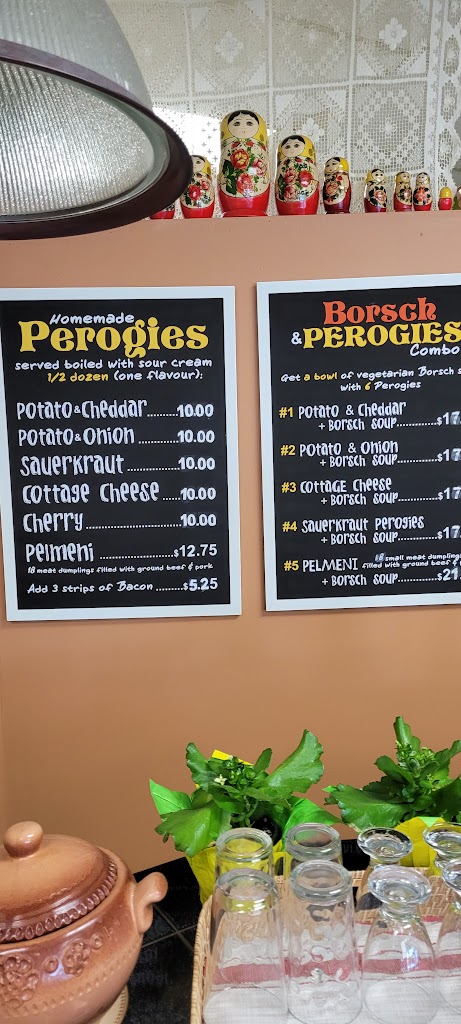 Homemade
Perogies
served boiled with sour cream
1/2 dozen (one flavour):
Potato & Cheddar........10.00
Potato & Onion..........10.00
Sauerkraut................10.00
Cottage Cheese.....10.00
Cherry.......................10.00
Pelmeni..................$12.75
18 meat dumplings filled with ground beef & pork
Add 3 strips of Bacon........$5.25
Borsch
& PEROGIES
Combo
Get a bowl of vegetarian Borsch
with 6 Perogies
#1 Potato & Cheddar
+ Borsch soup............$17
#2 Potato & Onion
+ Borsch soup............$17
#3 Cottage Cheese
+ Borsch soup............$17
#4 Sauerkraut Perogies
+ Borsch soup............$17
#5 PELMENI 18 small meat dumplings
filled with ground beef &
+ Borsch soup............$21